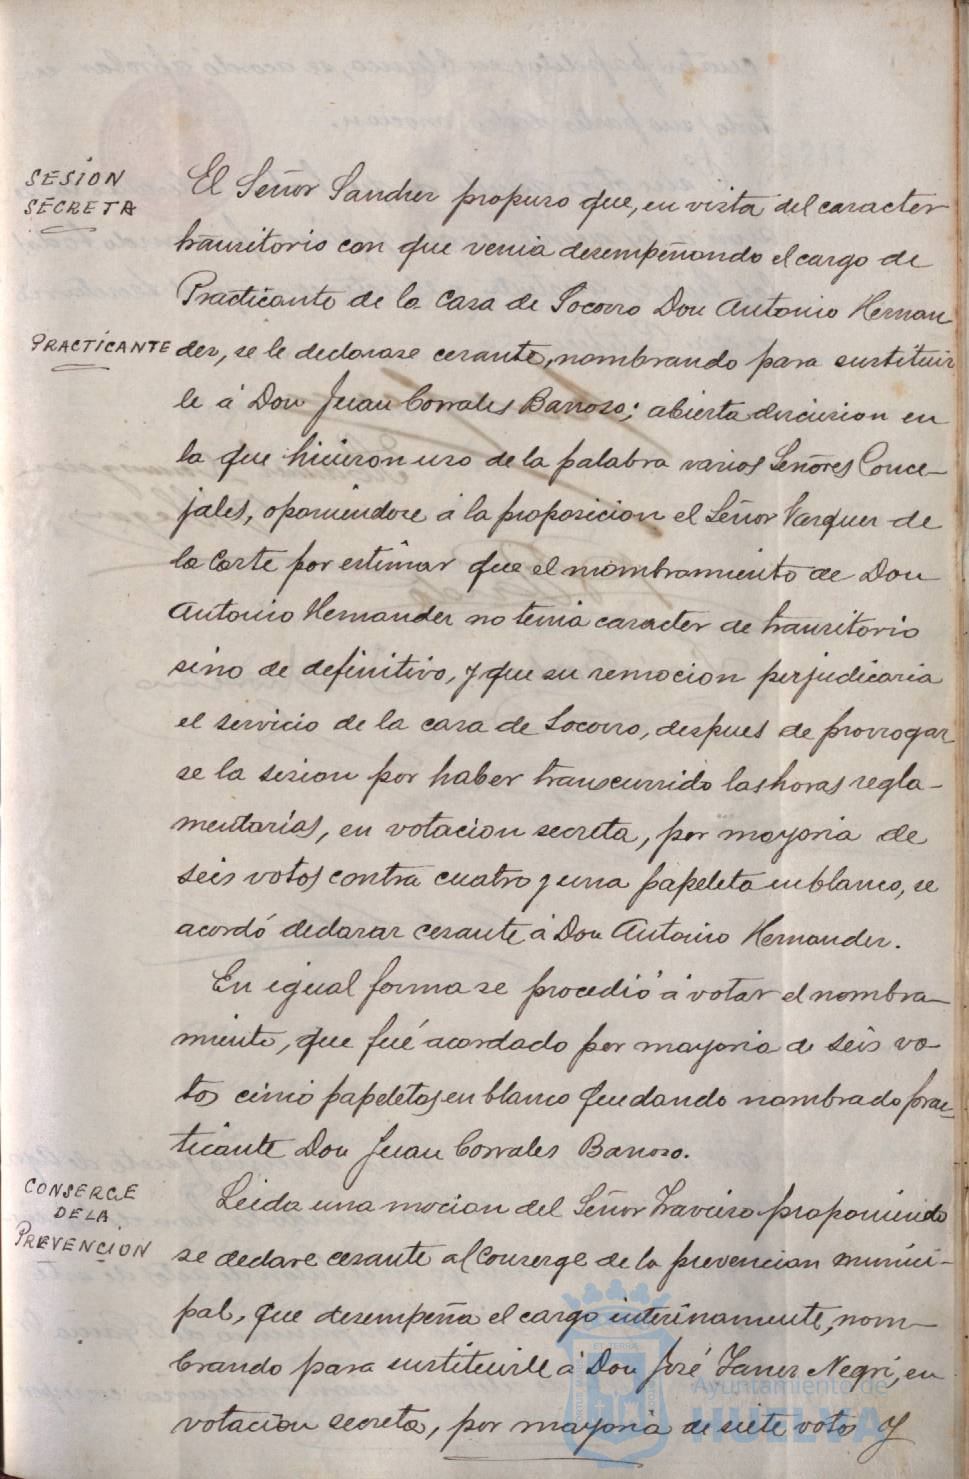 SESION
SECRETA
El Señor Sanchez propuso que, en vista del caracter
transitorio con que venia desempeñando el cargo de
Practicante de la Casa de Socorro Don Antonio Hernan
PRACTICANTE
dez, se le declarase cesante, nombrando para sustituir
le á Don Juan Corrales Barroso; abierta discusion en
la que hicieron uso de la palabra varios Señores Conce-
jales, oponiendose á la proposicion el Señor Vazquez de
la Corte por estimar que el nombramiento de Don
Antonio Hernandez no tenia caracter de transitorio
sino de definitivo, y que su remocion perjudicaria
el servicio de la casa de Socorro, despues de prorrogar
se la sesion por haber transcurrido las horas regla-
mentarias, en votacion secreta, por mayoria de
seis votos contra cuatro y una papeleta en blanco, se
acordó declarar cesante á Don Antonio Hernandez.
En igual forma se procedió á votar el nombra-
miento, que fué acordado por mayoria de seis vo-
tos cinco papeletas en blanco quedando nombrado prac-
ticante Don Juan Corrales Barroso.
CONSERGE
DE LA
PREVENCION
Leida una mocion del Señor proponiendo
se declare cesante al Conserge de la prevencion munici-
pal, que desempeña el cargo interinamente, nom-
brando para sustituirle á Don José Negri, en
votacion secreta, por mayoria de siete votos y
Ayuntamiento de
HUELVA